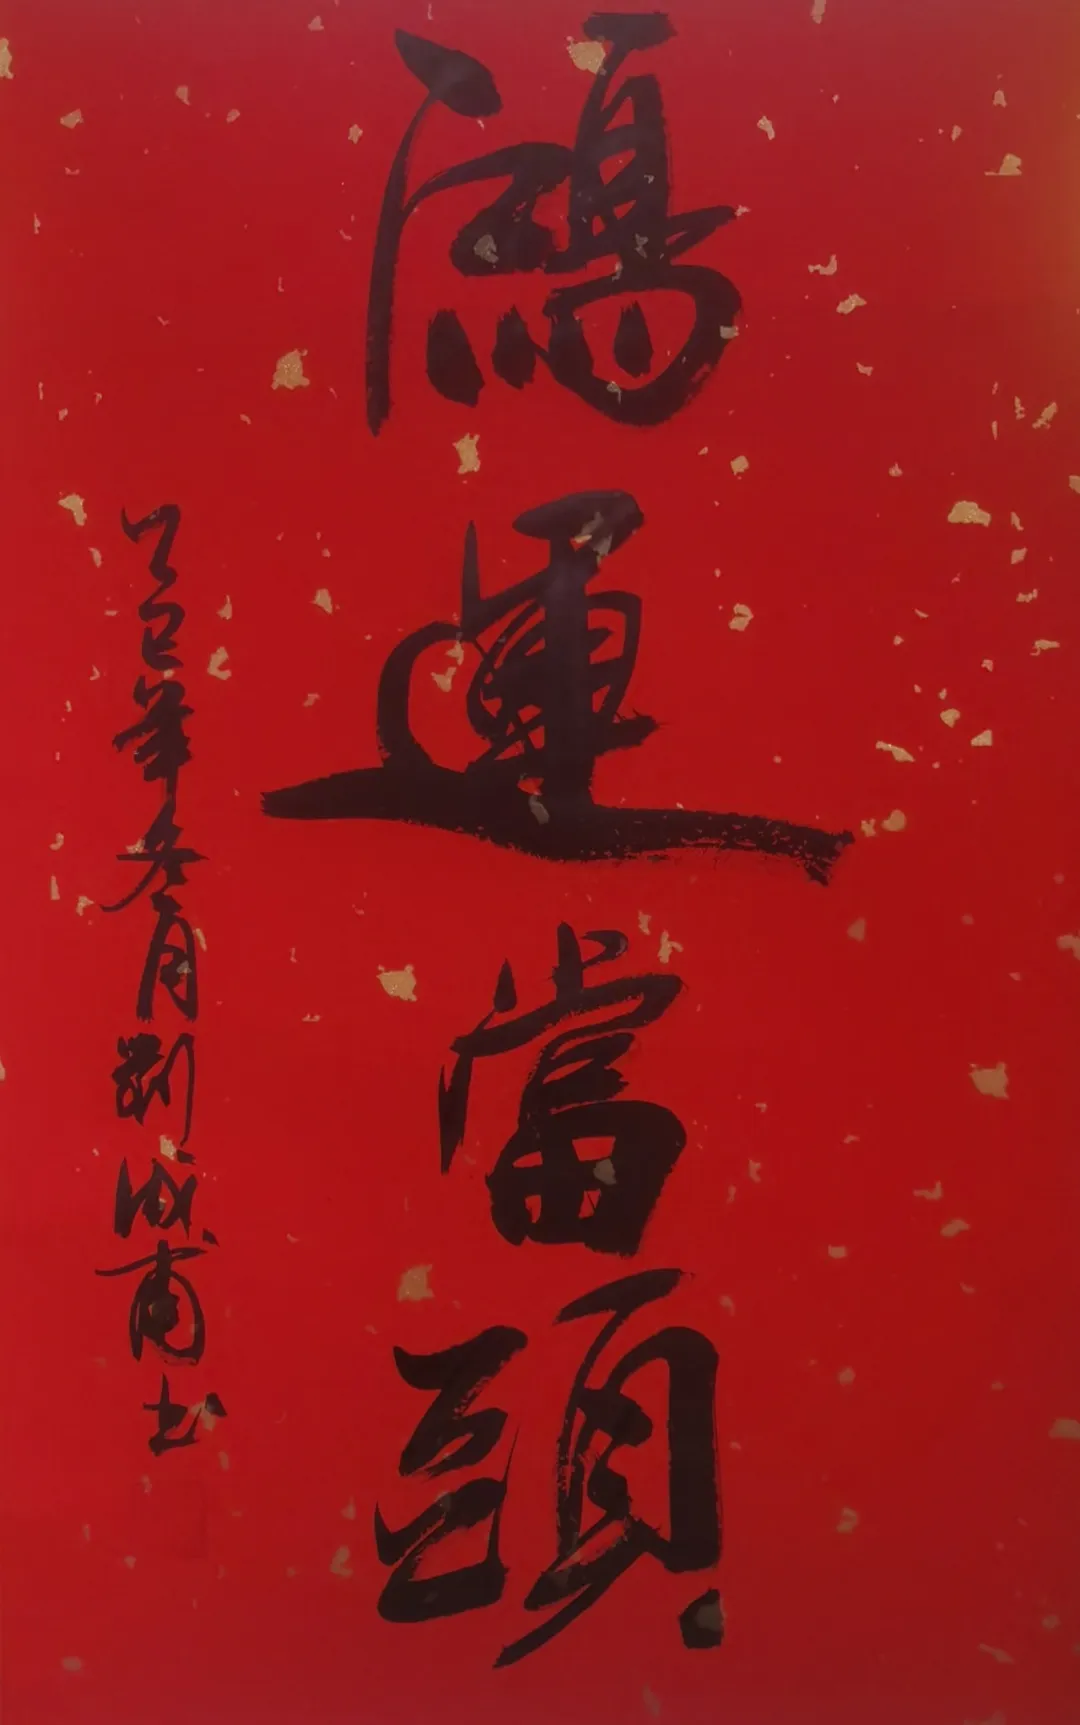 鴻運當頭
乙巳年冬月劉成甫书